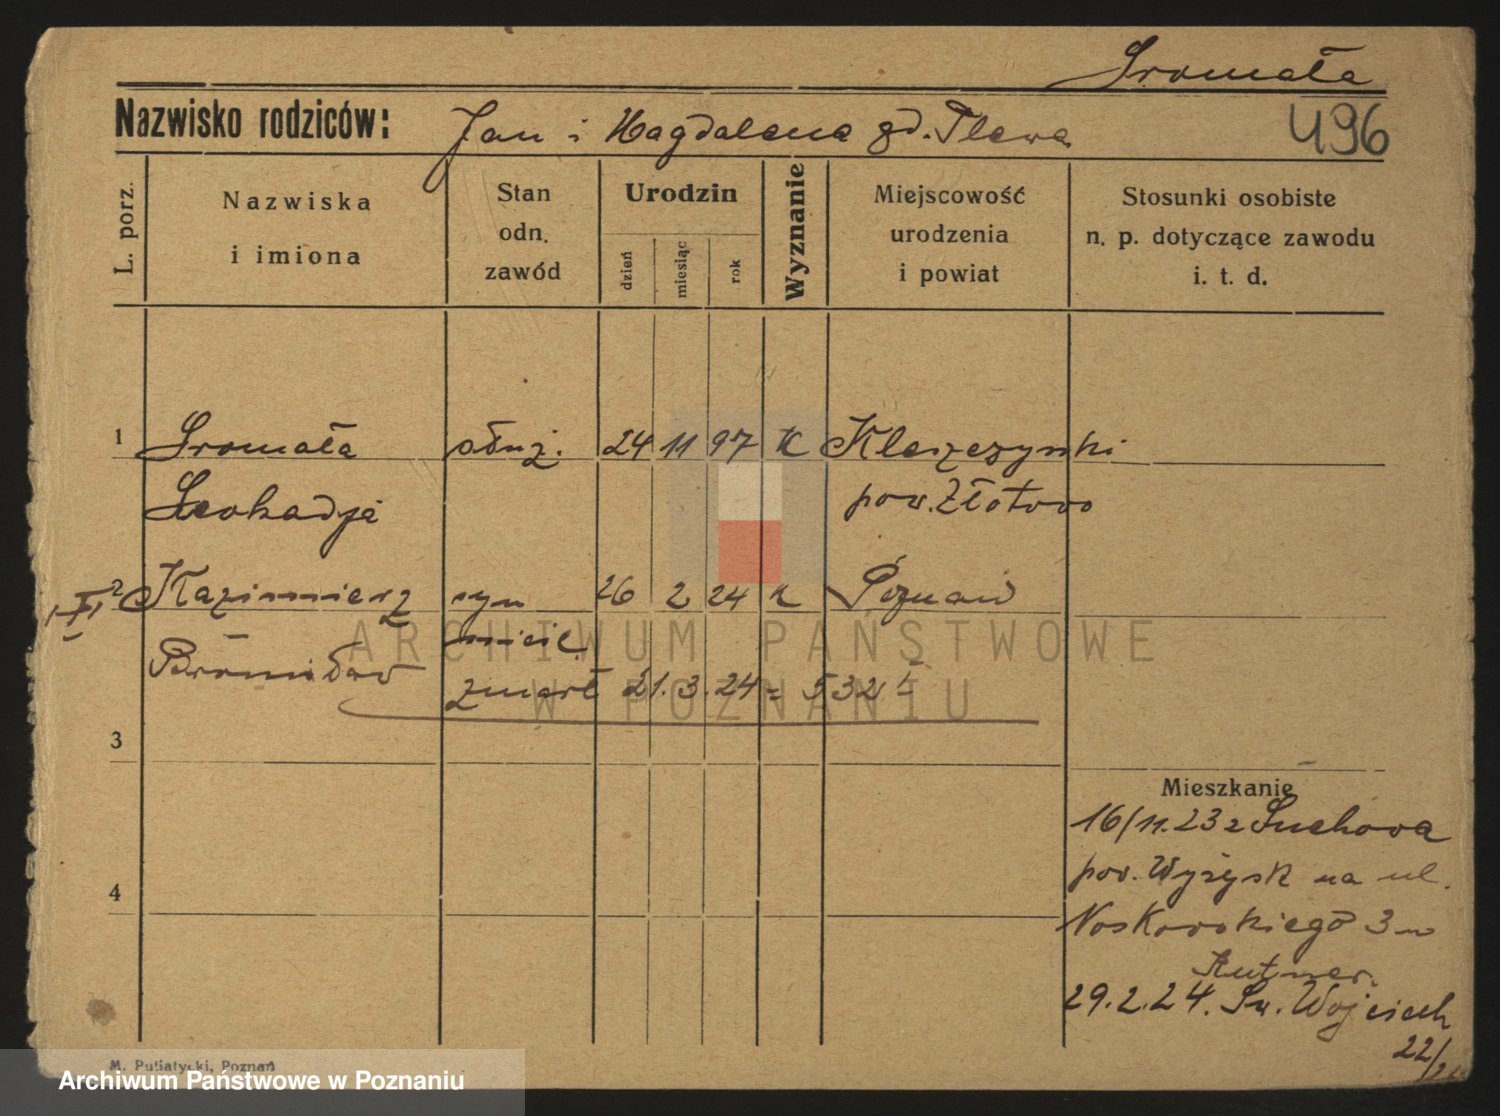 Sromała
Nazwisko rodziców: Jan i Magdalena zd. Plewa
496
L. porz.
Nazwiska i imiona
Stan odn. zawód
Urodzin
dzień miesiąc rok
Wyznanie
Miejscowość urodzenia i powiat
Stosunki osobiste n. p. dotyczące zawodu i. t. d.
1 Sromała służ. 24 11 97 K Kleszczynki
Leokadja pow. Złotowo
2 Kazimierz syn 26 2 24 K Poznań
Bronisław nieśl.
zmarł 21.3.24 = 532
3
4
Mieszkanie
16/11.23 z Suchowa
pow. Wyżysk na ul.
Noskowskiego 3
29.2.24. Św. Wojciech
22/
ARCHIWUM PAŃSTWOWE
W POZNANIU
M. Putiatycki, Poznań
Archiwum Państwowe w Poznaniu